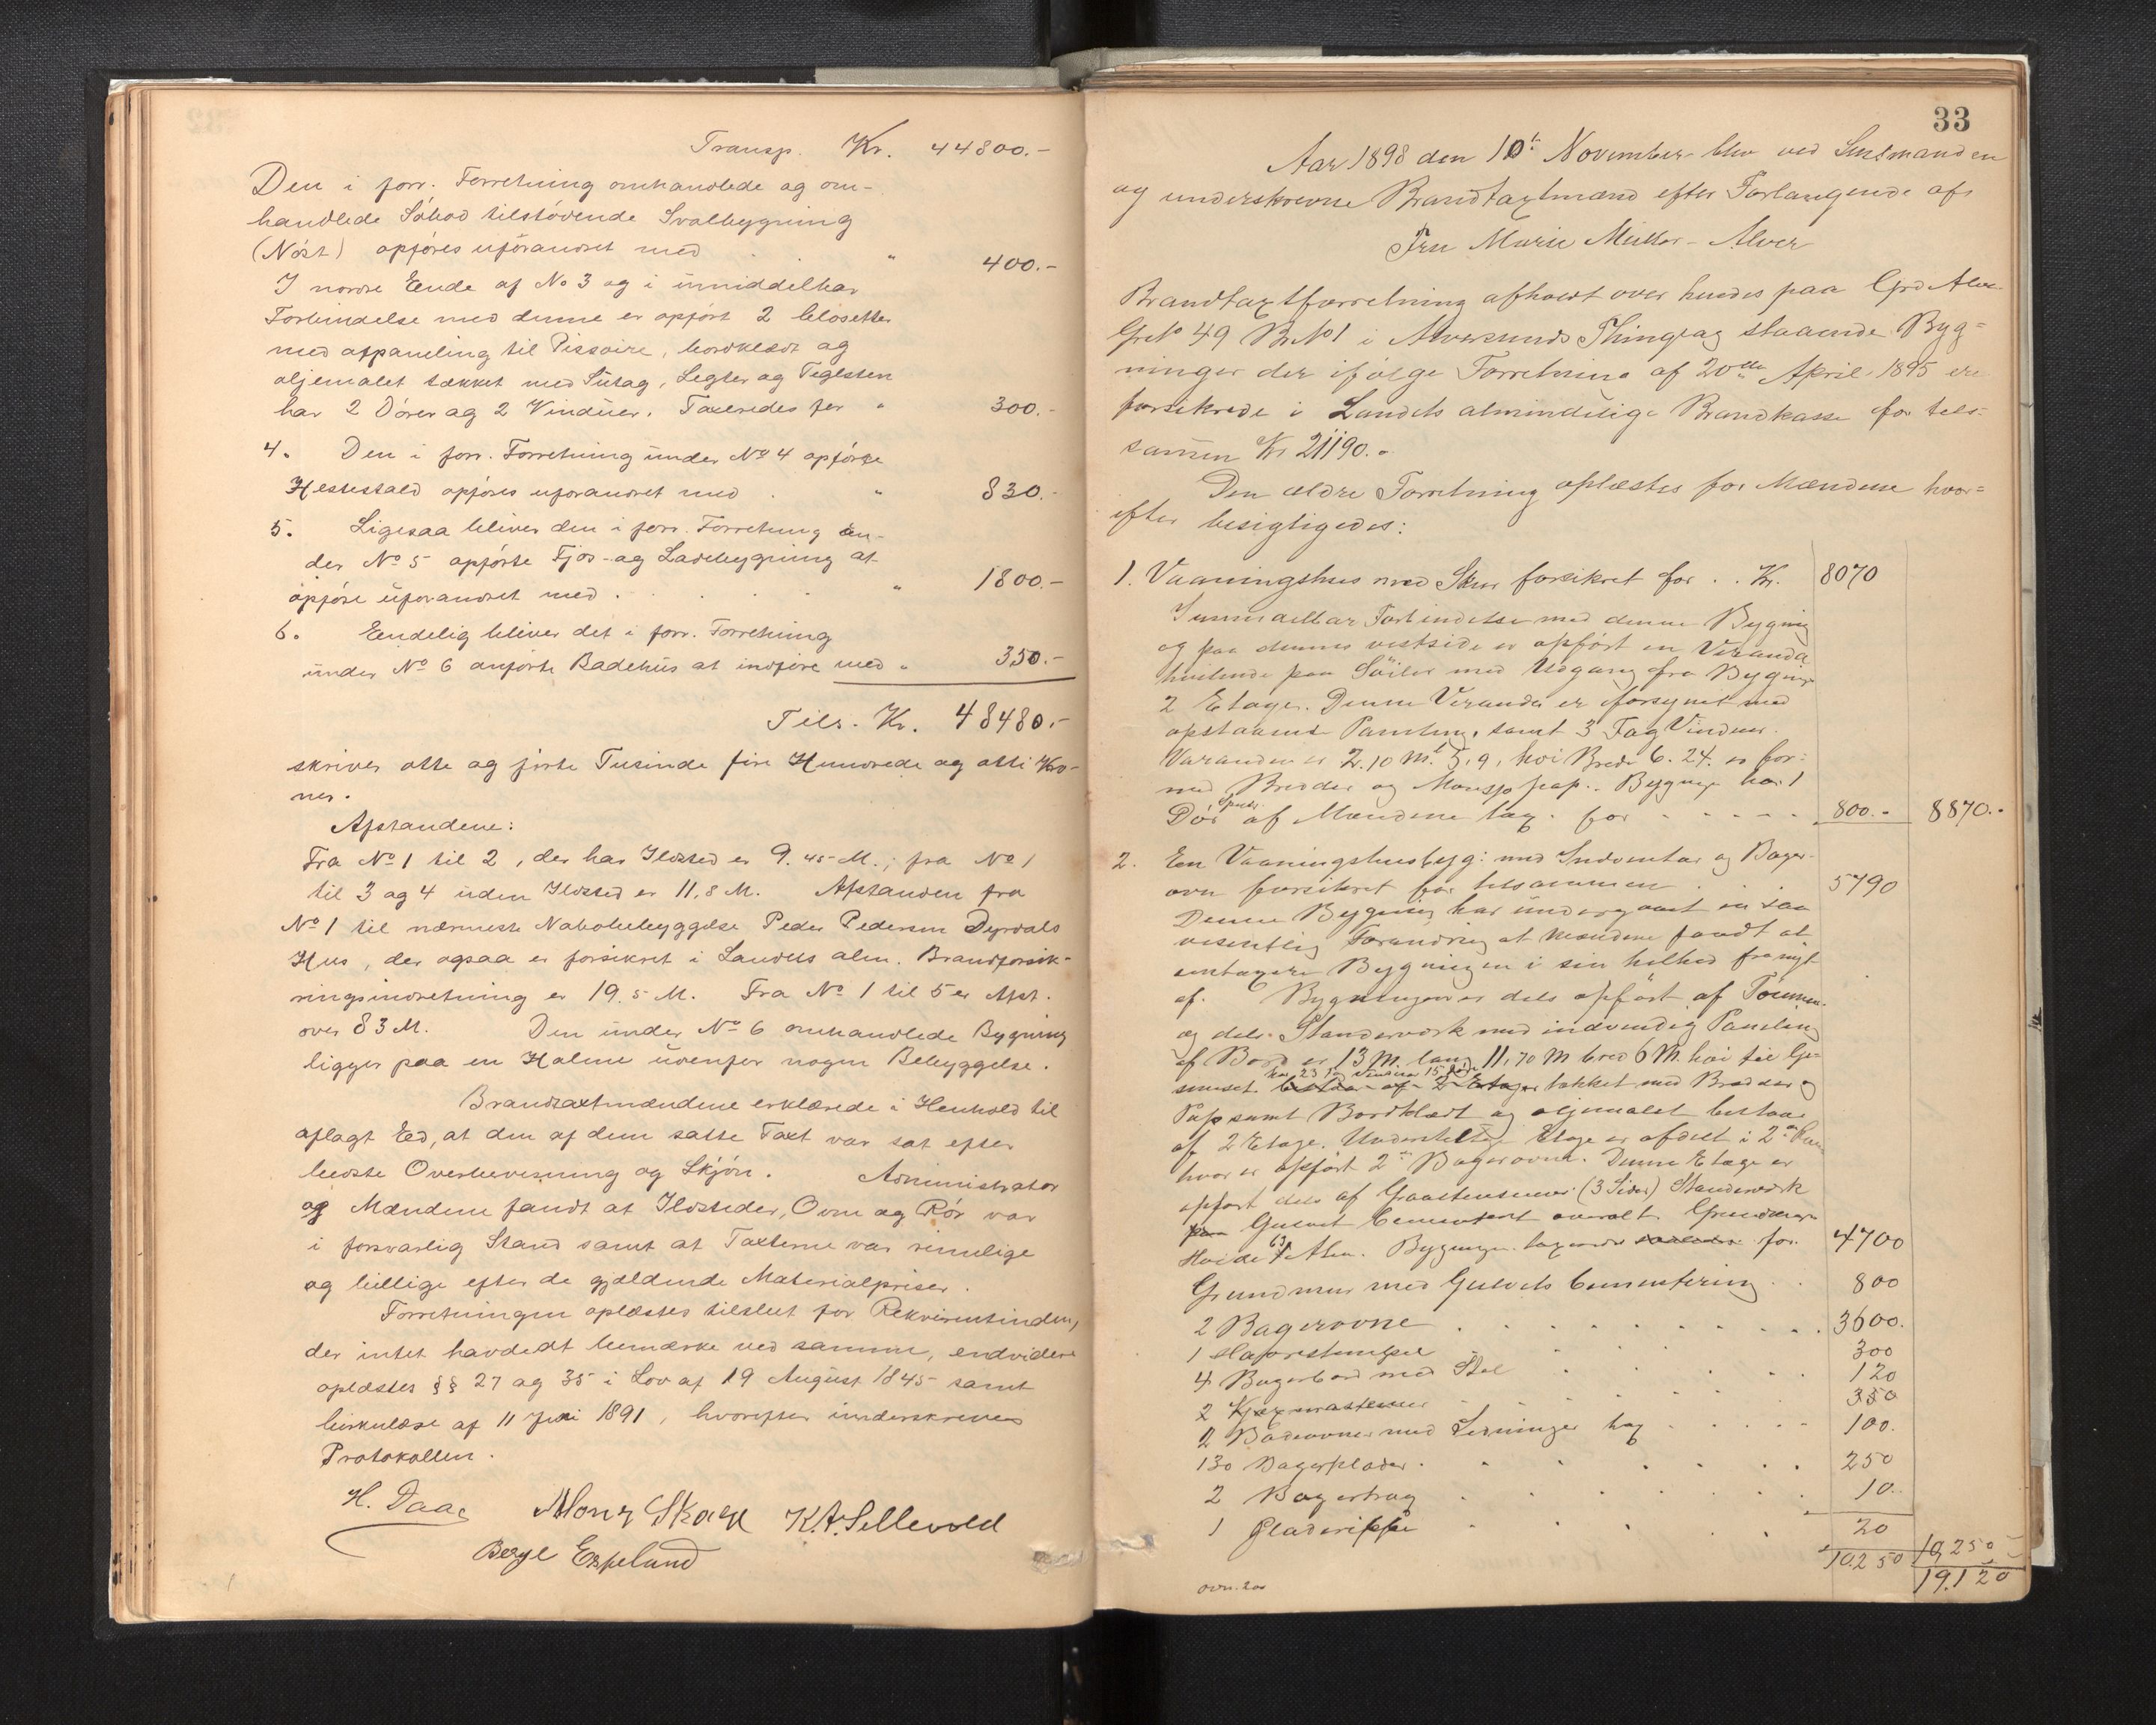 Transp. Kr. 44800.-
Den i forr. Forretning omhandlede og om-
handlede Söbod tilstödende Svalbygning
(Nöst) opföres uforandret med . . " 400.-
I nordre Ende af No 3 og i umiddelbar
Forbindelse med denne er opfört 2 Closetter
med afpaneling til Pissoire, bordklædt og
oljemalet tækket med Sutag, Legter og Teglsten
har 2 Dörer og 2 Vinduer. Taxeredes for " 300.-
4. Den i forr. Forretning under No 4 opförte
Hestestald opföres uforandret med . " 830.-
5. Ligesaa bliver den i forr. Forretning un-
der No 5 opförte Fjös- og Ladebygning at
opföre uforandret med . . . . " 1800.-
6. Endelig bliver det i forr. Forretning
under No 6 anförte Badehus at indföre med " 350.-
Tils. Kr. 48480.-
skriver otte og förti Tusinde fire Hundrede og otti Kro-
ner.
Afstandene:
Fra No 1 til 2, der har Ildsted er 9.45 M.; fra No 1
til 3 og 4 uden Ildsted er 11,8 M. Afstanden fra
No 1 til nærmeste Nabobebyggelse Peder Pedersen Dyrdals
Hus, der ogsaa er forsikret i Landets alm. Brandforsik-
ringsindretning er 19.5 M. Fra No 1 til 5 er Afst.
over 83 M. Den under No 6 omhandlede Bygning
ligger paa en Holme udenfor nogen Bebyggelse.
Brandtaxtmændene erklærede i Henhold til
aflagt Ed, at den af dem satte Taxt var sat efter
bedste Overbevisning og Skjön. Administrator
og Mændene fandt at Ildsteder, Ovne og Rör var
i forsvarlig Stand samt at Taxterne var rimelige
og billige efter de gjældende Materialpriser.
Forretningen oplæstes tilslut for Rekvirentinden,
der intet havde at bemærke ved samme, endvidere
oplæstes §§ 27 og 35 i Lov af 19 August 1845 samt
Cirkulære af 11 Juni 1891, hvorefter underskreves
Protokollen.
H. Daae Mons Skage K.A. Sellevold
Berge Espelund
33
Aar 1898 den 10de November blev ved Lensmanden
og underskrevne Brandtaxtmænd efter Forlangende af
Fru Marie Müller - Alver
Brandtaxtforretning afholdt over hendes paa Grd Alver
GrNo 49 BrNo 1 i Alversunds Thinglag staaende Byg=
ninger der ifölge Forretning af 20de April 1895 ere
forsikrede i Landets almindelige Brandkasse for til-
sammen Kr 21190.
Den ældre Forretning oplæstes for Mændene hvor=
efter besigtigedes:
1. Vaaningshus med Skur forsikret for . . Kr. 8070
I umiddelbar Forbindelse med denne Bygning
og paa dennes vestside er opfört en Veranda
hvilende paa Söiler med Udgang fra Bygningens
2 Etage. Denne Veranda er forsynet med
opstaaende Paneling, samt 3 Fag Vinduer.
Varandaen er 2,10 M. 5,9, höi Bred 6.24. er for-
med Bredder og pap. Bygningen har 1
Dör af Mændene tax. for - - - - - 800.- 8870.-
2. En Vaaningshusbyg: med Indventar og Bager-
ovn forsikret for tilsammen . 5790
Denne Bygning har undergaaet en saa
væsentlig Forandring at Mændene fandt at
omtaxere Bygningen i sin helhed fra nyt
af. Bygningen er dels opfört af Tömmer
og dels Standerværk med indvendig Paneling
af Bord er 13 M. lang 11,70 M bred 6 M. höi til Ge-
simset. har 23 Fag Vinduer 15 Döre bestaar af 2 Etager takket med Bredder og
Pap samt Bordklædt og oljemalet bestaar
af 2 Etage. Understeliger Etage er afdelt i 2de Rum
hvor er opfört 2de Bagerovne. Denne Etage er
opfört dels af Graastensmur (3 Sider) Standerværk
Gulvet Cementeret overalt. Grundmurens
Höide 6½ Alen. Bygningen taxeredes for 4700
Grundmur med Gulvets Cementering . . 800
2 Bagerovne . . . . . . . . 3600.
1 . . . 300
4 Bagerbord med Stol . . . . 120
2 . . . . 350
2 Badeovne med Ledninger tax - - - - 100.
130 Bagerplader . . . . . 250
2 Bagertrug . . . . . 10.
1 Pladerippe . . . . 20
10250 10,250
19,120